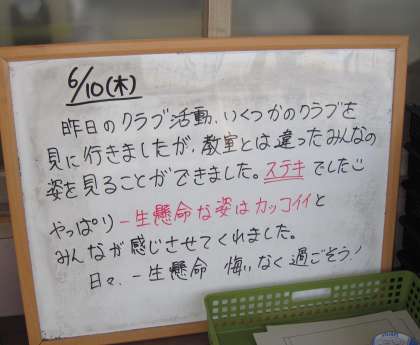 6/10(木)
昨日のクラブ活動、いくつかのクラブを
見に行きましたが、教室とは違ったみんなの
姿を見ることができました。ステキでしたご
やっぱり一生懸命な姿はカッコイイと
みんなが感じさせてくれました。
日々、一生懸命 悔いなく過ごそう!